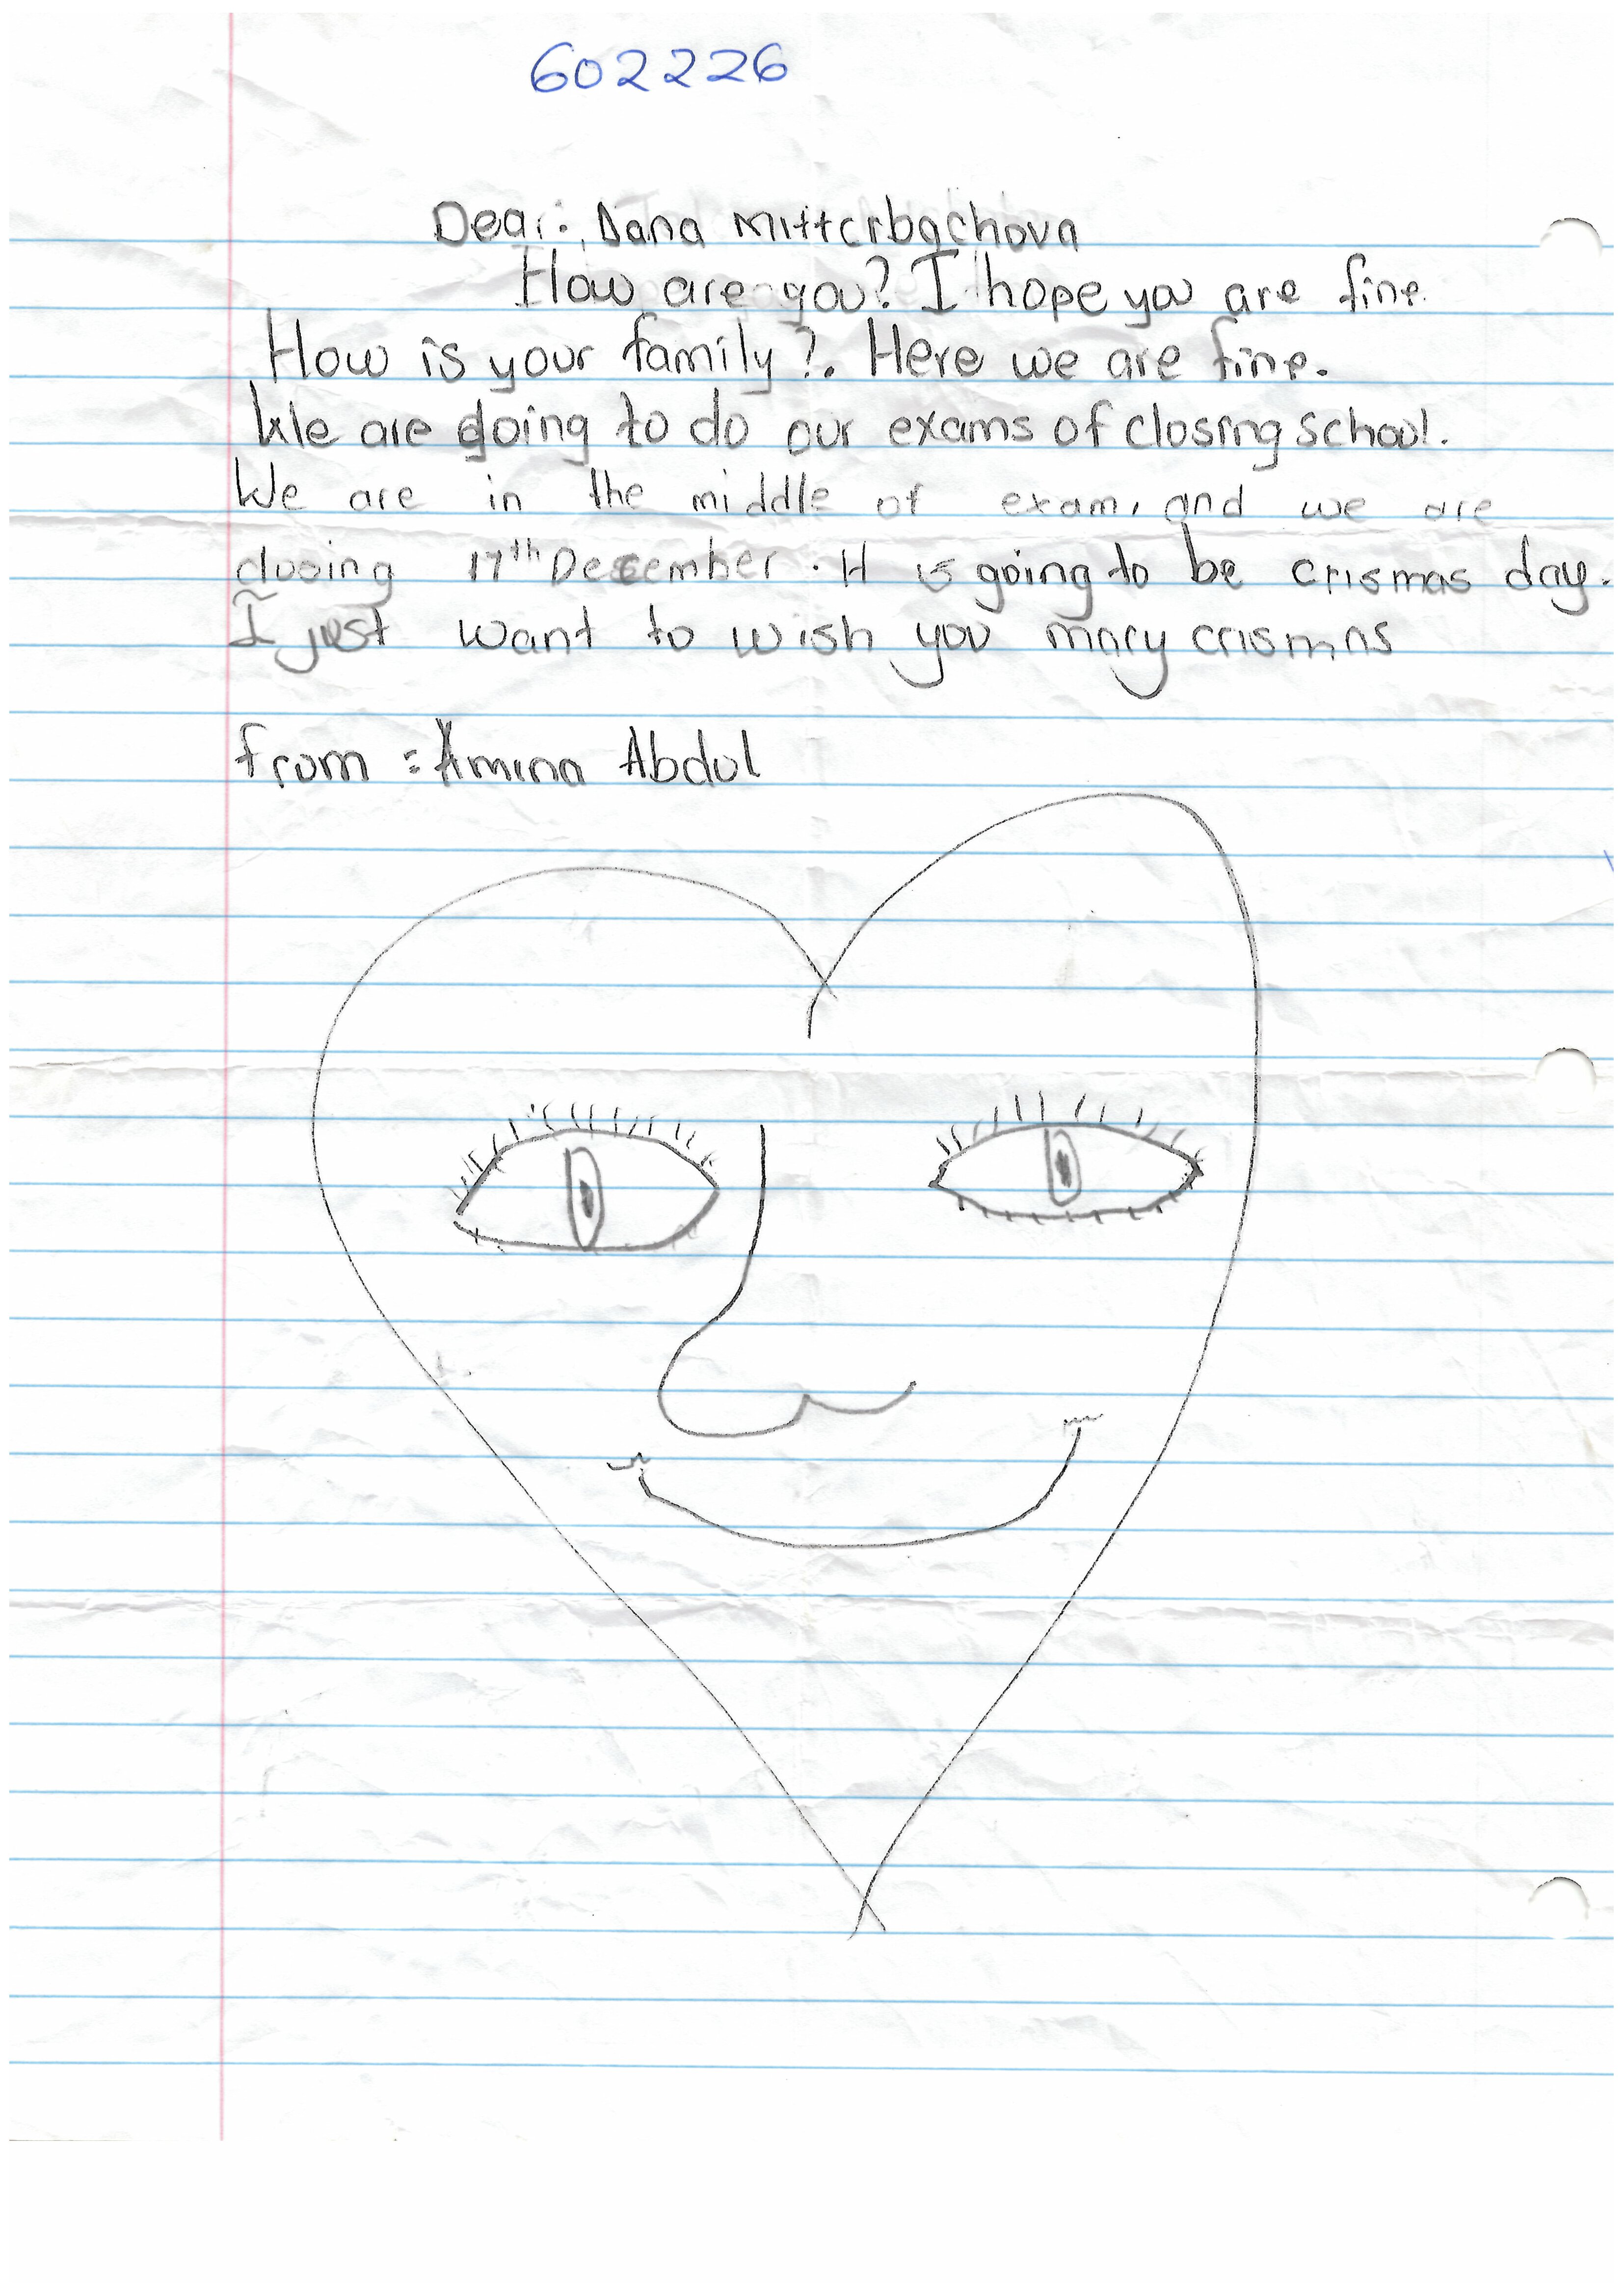 602226
Dear:, Dana Mitterbachova
How are you? I hope you are fine
How is your family?. Here we are fine.
We are going to do our exams of closing school.
We are in the middle of exam, and we are
closing 17th December. It is going to be crismas day.
I just want to wish you mary crismas
from = Amina Abdul